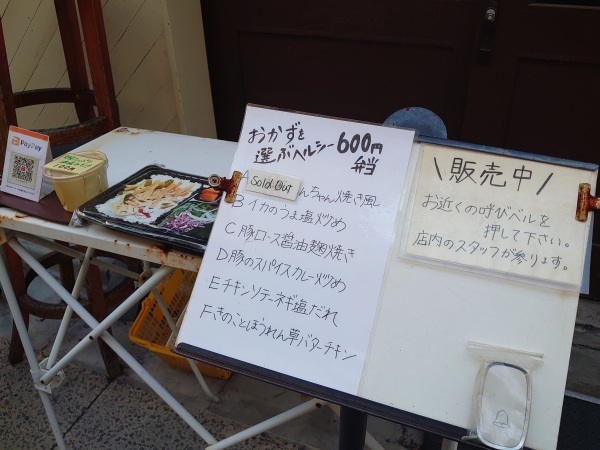 PayPay
おかずを
選ぶヘルシー600円
弁当
A
Sold Out
んちゃん焼き風
B イカのうま塩炒め
C 豚ロース醤油麹焼き
D 豚のスパイスカレー炒め
E チキンソテーネギ塩だれ
F きのことほうれん草バターチキン
\販売中/
お近くの呼びベルを
押して下さい。
店内のスタッフが参ります。